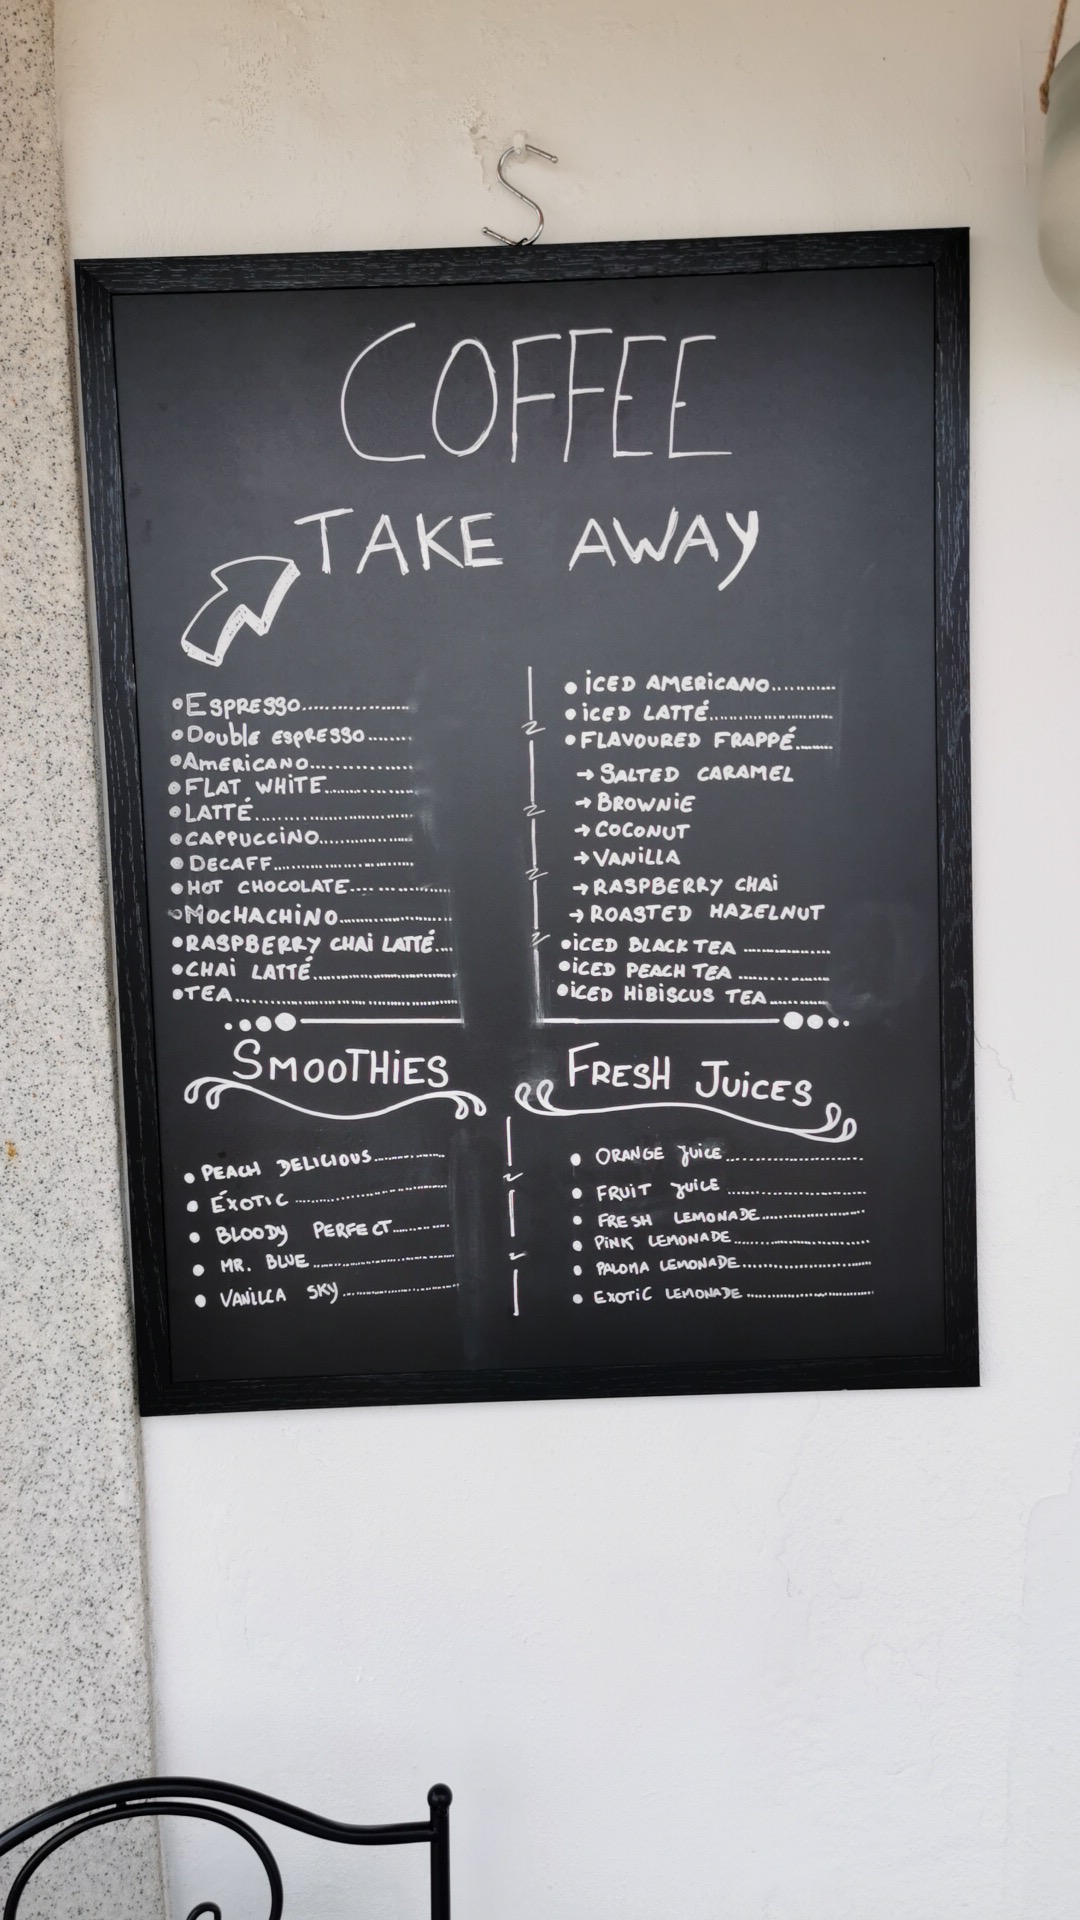 COFFEE
TAKE AWAY
• ESPRESSO..................
• Double ESPRESSO........
• AMERICANO..................
• FLAT WHITE..................
• LATTÉ..................
• CAPPUCCINO..................
• DECAFF..................
• HOT CHOCOLATE..................
• MOCHACHINO..................
• RASPBERRY CHAI LATTÉ....
• CHAI LATTÉ..................
• TEA..................
• ICED AMERICANO............
• ICED LATTÉ..................
• FLAVOURED FRAPPÉ.......
→ SALTED CARAMEL
→ BROWNIE
→ COCONUT
→ VANILLA
→ RASPBERRY CHAI
→ ROASTED HAZELNUT
• ICED BLACK TEA ..................
• ICED PEACH TEA ..................
• ICED HIBISCUS TEA............
SMOOTHIES
• PEACH DELICIOUS..................
• ÉXOTIC ..................
• BLOODY PERFECT............
• MR. BLUE..................
• VANILLA SKY..................
FRESH JUICES
• ORANGE JUICE..................
• FRUIT JUICE ..................
• FRESH LEMONADE..................
• PINK LEMONADE..................
• PALOMA LEMONADE..................
• EXOTIC LEMONADE..................